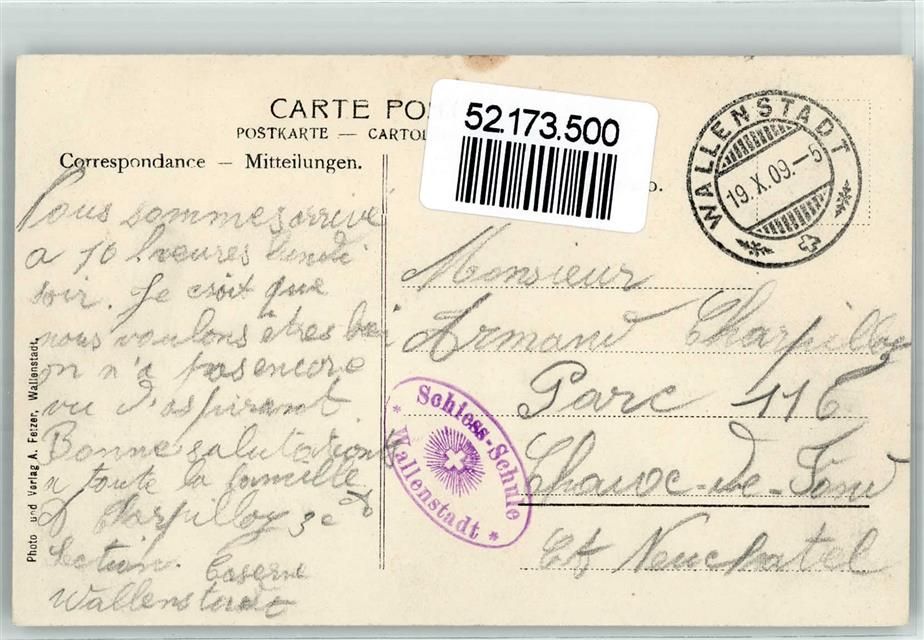 CARTE PO
POSTKARTE — CARTOL
Correspondance — Mitteilungen.
52.173.500
WALLENSTADT
19.X.09.–5
Nous sommes arrivé
a 10 heures lundi
soir. Je croit que
nous voulons êtres bei
on n'a pas encore
vu d'aspirant
Bonne salutations
a toute la famille
Charpilloz 3e
Section. Caserne
Wallenstadt
Monsieur
Armand Charpilloz
Parc 116
Chaux-de-Fond
Ct Neuchatel
Schiess-Schule
* Wallenstadt *
Photo und Verlag A. Fetzer, Wallenstadt.